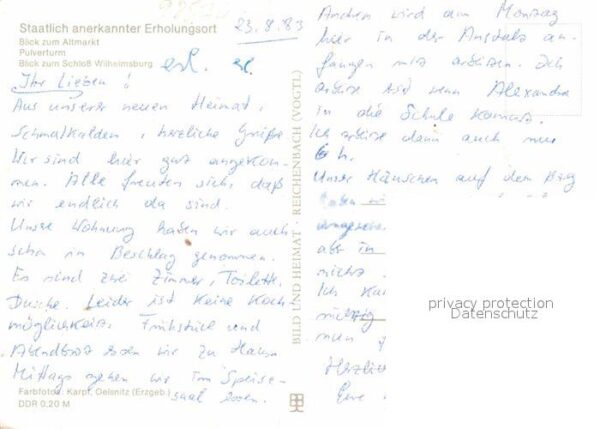 Staatlich anerkannter Erholungsort
Blick zum Altmarkt
Pulverturm
Blick zum Schloß Wilhelmsburg
23.8.83
erl.
Ihr Lieben!
Aus unserer neuen Heimat,
Schmalkalden, herzliche Grüße
Wir sind hier gut angekom-
men. Alle freuten sich, daß
wir endlich da sind.
Unsre Wohnung haben wir auch
schon in Beschlag genommen.
Es sind zwei Zimmer, Toilette,
Dusche. Leider ist keine Koch-
möglichkeit. Frühstück und
Abendbrot essen wir zu Hause
Mittags gehen wir im Speise-
saal essen.
Farbfotos: Karpf, Oelsnitz (Erzgeb.)
DDR 0,20 M
BILD UND HEIMAT · REICHENBACH (VOGTL)
wird am Montag
hier in der Anstalt an-
fangen mit arbeiten. Ich
arbeite erst wenn Alexandra
in die Schule kommt.
Ich arbeite dann auch nur
6 h.
Unser Häuschen auf dem Berg
haben wi
angeseh
ab in
nichts
Ich
nun
Herzlic
privacy protection
Datenschutz